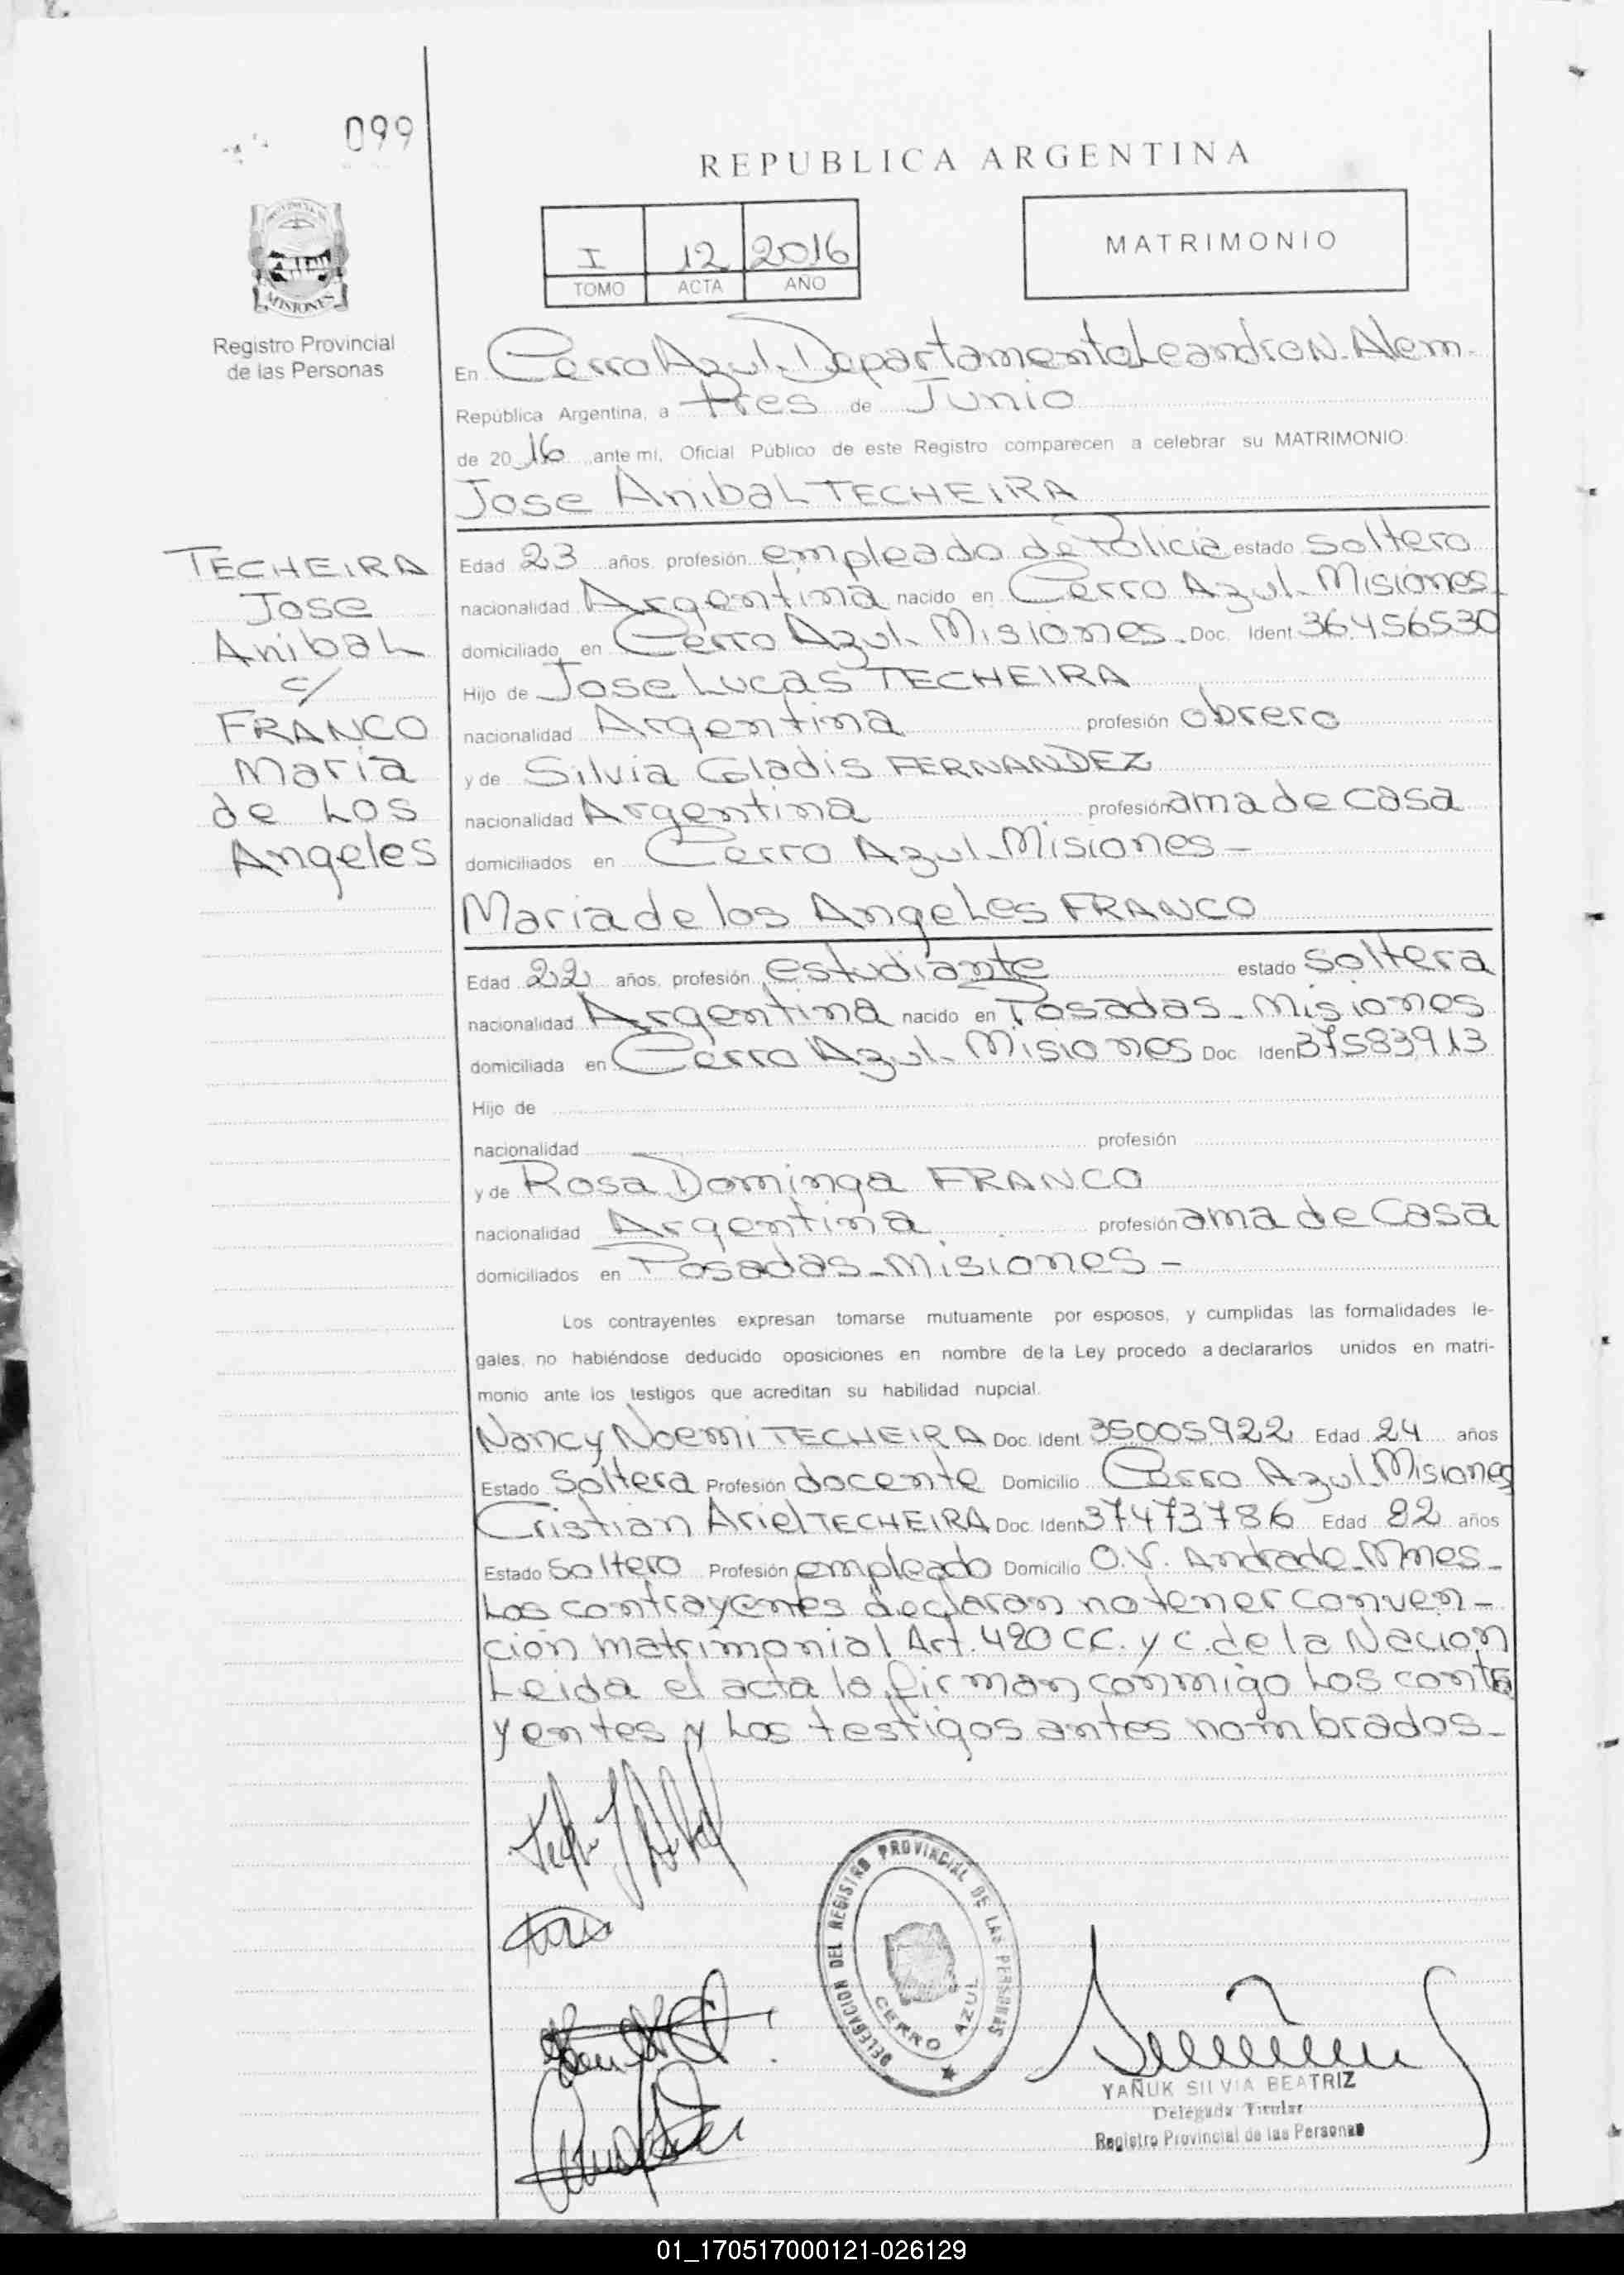 099
REPUBLICA ARGENTINA
I 12 2016
TOMO ACTA AÑO
MATRIMONIO
MISIONES
Registro Provincial
de las Personas
En Cerro Azul. Departamento Leandro N. Alem.
República Argentina, a tres de Junio
de 20 16 ante mi, Oficial Público de este Registro comparecen a celebrar su MATRIMONIO:
Jose Anibal TECHEIRA
TECHEIRA
Jose
Anibal
c/
FRANCO
Maria
de Los
Angeles
Edad 23 años, profesión empleado de Policia estado Soltero
nacionalidad Argentina nacido en Cerro Azul. Misiones.
domiciliado en Cerro Azul. Misiones. Doc. Ident 36.456530
Hijo de Jose Lucas TECHEIRA
nacionalidad Argentina profesión obrero
y de Silvia Gladis FERNANDEZ
nacionalidad Argentina profesión ama de casa
domiciliados en Cerro Azul. Misiones -
Maria de los Angeles FRANCO
Edad 22 años, profesión estudiante estado Soltera
nacionalidad Argentina nacido en Posadas - Misiones
domiciliada en Cerro Azul. Misiones Doc. Iden 37583913
Hijo de
nacionalidad profesión
y de Rosa Dominga FRANCO
nacionalidad Argentina profesión ama de Casa
domiciliados en Posadas - Misiones -
Los contrayentes expresan tomarse mutuamente por esposos, y cumplidas las formalidades le-
gales, no habiéndose deducido oposiciones en nombre de la Ley procedo a declararlos unidos en matri-
monio ante los testigos que acreditan su habilidad nupcial.
Nancy Noemi TECHEIRA Doc. Ident. 35005922 Edad 24 años
Estado Soltera Profesión docente Domicilio Cerro Azul Misiones
Cristian Ariel TECHEIRA Doc. Iden 37473786 Edad 22 años
Estado Soltero Profesión empleado Domicilio O.V. Andrade - Mnes -
Los contrayentes declaran no tener conven-
cion matrimonial Art. 420 CC. y c. de la Nacion
Leida el acta la firman conmigo Los contra
yentes y Los testigos antes nombrados -
DELEGACION DEL REGISTRO PROVINCIAL DE LAS PERSONAS
CERRO AZUL
YAÑUK SILVIA BEATRIZ
Delegada Titular
Registro Provincial de las Personas
01_170517000121-026129